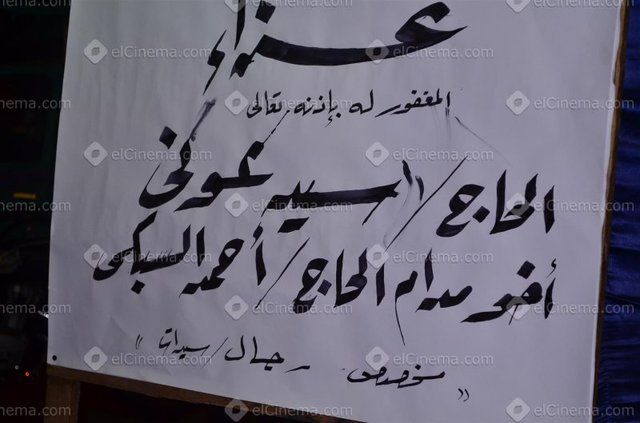 عزاء
المغفور له بإذنه تعالى
الحاج / السيد عوني
أخو مدام الحاج / أحمد السبكى
" مخصص رجال / سيدات "
elCinema.com